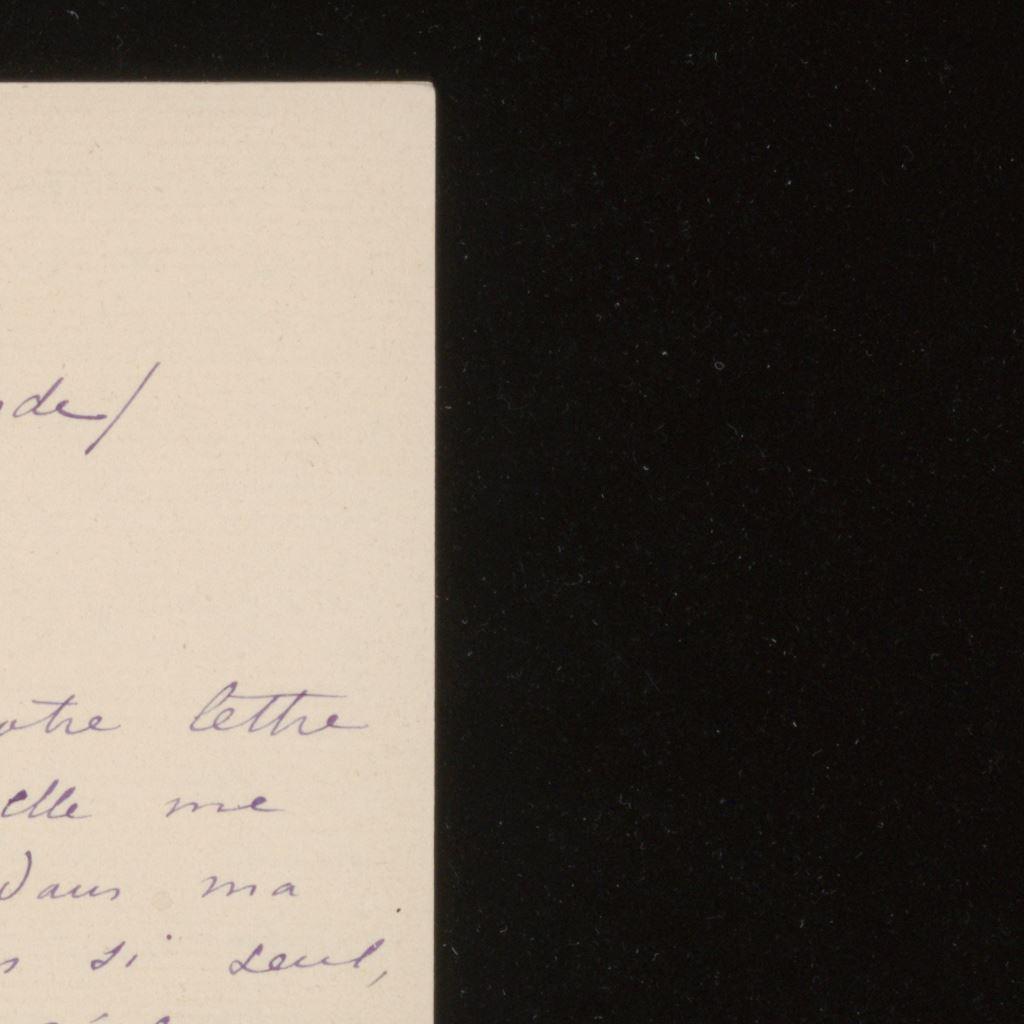 de/
otre lettre
elle me
Dans ma
s si seul,